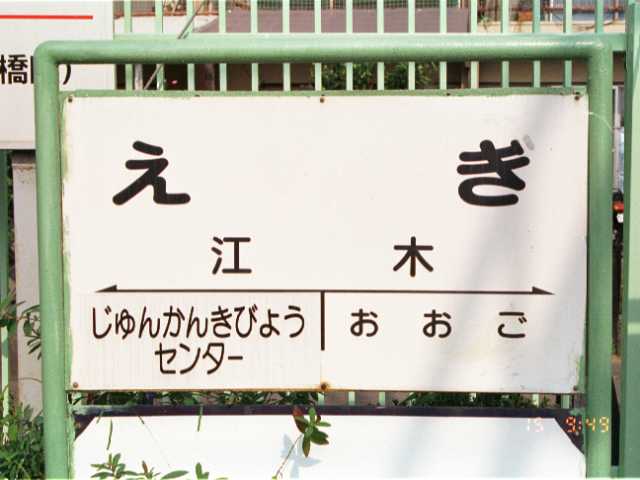 橋
えぎ
江木
じゅんかんきびょう
センター
おおご
15 9:49